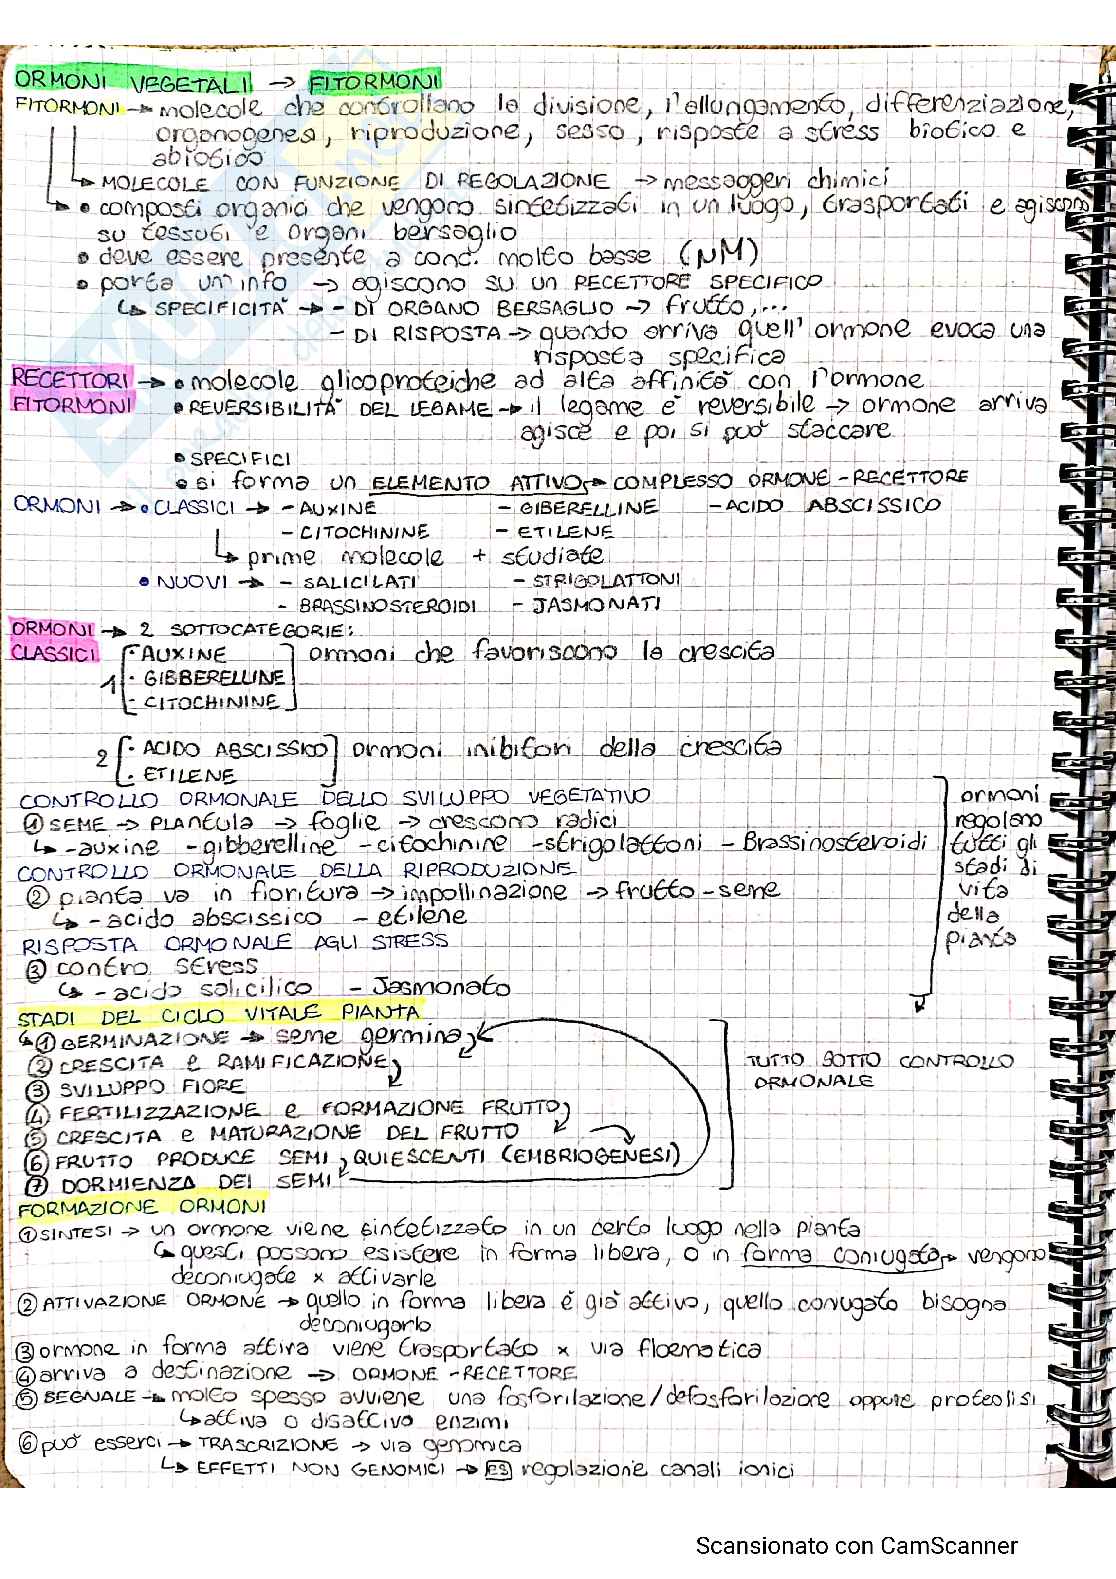 ORMONI VEGETALI → FITORMONI
FITORMONI → molecole che controllano la divisione, l'allungamento, differenziazione,
organogenesi, riproduzione, sesso, risposte a stress biotico e
abiotico
↳ MOLECOLE CON FUNZIONE DI REGOLAZIONE → messaggeri chimici
↳ • composti organici che vengono sintetizzati in un luogo, trasportati e agiscono
su tessuti e organi bersaglio
• deve essere presente a conc. molto basse (NM)
• porta un'info → agiscono su un RECETTORE SPECIFICO
↳ SPECIFICITA' → - DI ORGANO BERSAGLIO → frutto,...
- DI RISPOSTA → quando arriva quell'ormone evoca una
risposta specifica
RECETTORI → • molecole glicoproteiche ad alta affinità con l'ormone
FITORMONI • REVERSIBILITA' DEL LEGAME → il legame è reversibile → ormone arriva
agisce e poi si può staccare
• SPECIFICI
• si forma un ELEMENTO ATTIVO → COMPLESSO ORMONE-RECETTORE
ORMONI → • CLASSICI → - AUXINE - GIBERELLINE - ACIDO ABSCISSICO
- CITOCHININE - ETILENE
↳ prime molecole + studiate
• NUOVI → - SALICILATI - STRIGOLATTONI
- BRASSINOSTEROIDI - JASMONATI
ORMONI → 2 SOTTOCATEGORIE:
CLASSICI · AUXINE ormoni che favoriscono la crescita
1 · GIBBERELLINE
· CITOCHININE
2 · ACIDO ABSCISSICO ormoni inibitori della crescita
· ETILENE
CONTROLLO ORMONALE DELLO SVILUPPO VEGETATIVO
① SEME → PLANTULA → foglie → crescono radici
↳ -auxine -gibberelline -citochinine -strigolattoni -Brassinosteroidi
CONTROLLO ORMONALE DELLA RIPRODUZIONE
② pianta va in fioritura → impollinazione → frutto-seme
↳ -acido abscissico -etilene
RISPOSTA ORMONALE AGLI STRESS
③ contro stress
↳ -acido salicilico -Jasmonato
ormoni
regolano
tutti gli
stadi di
vita
della
pianta
STADI DEL CICLO VITALE PIANTA
↳ ① GERMINAZIONE → seme germina
② CRESCITA e RAMIFICAZIONE
③ SVILUPPO FIORE
④ FERTILIZZAZIONE e FORMAZIONE FRUTTO
⑤ CRESCITA e MATURAZIONE DEL FRUTTO
⑥ FRUTTO PRODUCE SEMI QUIESCENTI (EMBRIOGENESI)
⑦ DORMIENZA DEI SEMI
TUTTO SOTTO CONTROLLO
ORMONALE
FORMAZIONE ORMONI
① SINTESI → un ormone viene sintetizzato in un certo luogo nella pianta
↳ questi possono esistere in forma libera, o in forma coniugata → vengono
deconiugate x attivarle
② ATTIVAZIONE ORMONE → quello in forma libera è già attivo, quello coniugato bisogna
deconiugarlo
③ ormone in forma attiva viene trasportato x via floematica
④ arriva a destinazione → ORMONE-RECETTORE
⑤ SEGNALE → molto spesso avviene una fosforilazione/defosforilazione oppure proteolisi
↳ attiva o disattiva enzimi
⑥ può esserci → TRASCRIZIONE → via genomica
↳ EFFETTI NON GENOMICI → ES regolazione canali ionici
Scansionato con CamScanner